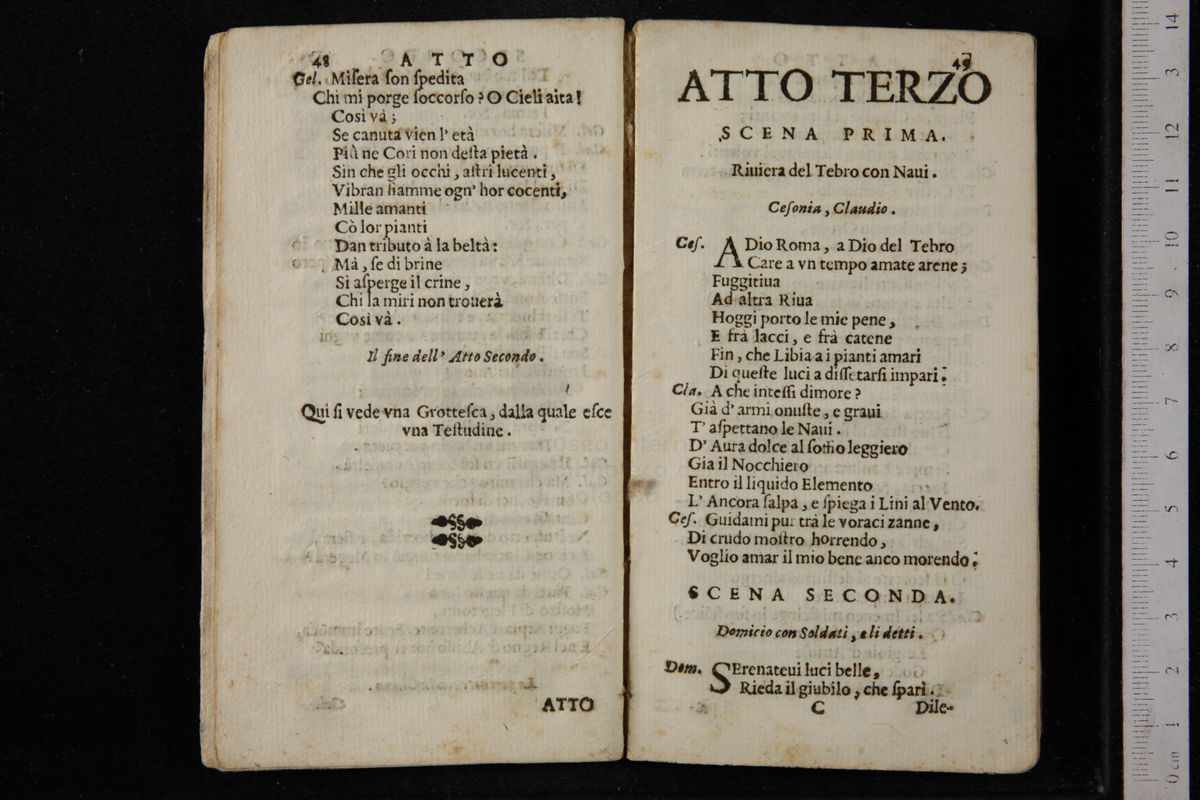 48 ATTO
Gel. Miſera ſon ſpedita
Chi mi porge ſoccorſo? O Cieli aita!
Così và;
Se canuta vien l' età
Più ne Cori non deſta pietà.
Sin che gli occhi, aſtri lucenti,
Vibran fiamme ogn' hor cocenti,
Mille amanti
Cò lor pianti
Dan tributo à la beltà:
Mà, ſe di brine
Si aſperge il crine,
Chi la miri non trouerà
Così và.
Il fine dell' Atto Secondo.
Qui ſi vede vna Grotteſca, dalla quale eſce
vna Teſtudine.
ATTO
49
ATTO TERZO
SCENA PRIMA.
Riuiera del Tebro con Naui.
Ceſonia, Claudio.
Ceſ. ADio Roma, a Dio del Tebro
Care a vn tempo amate arene;
Fuggitiua
Ad altra Riua
Hoggi porto le mie pene,
E frà lacci, e frà catene
Fin, che Libia a i pianti amari
Di queſte luci a diſſetarſi impari.
Cla. A che inteſſi dimore?
Già d' armi onuſte, e graui
T' aſpettano le Naui.
D' Aura dolce al ſoffio leggiero
Gia il Nocchiero
Entro il liquido Elemento
L' Ancora ſalpa, e ſpiega i Lini al Vento.
Ceſ. Guidami pur trà le voraci zanne,
Di crudo moſtro horrendo,
Voglio amar il mio bene anco morendo.
SCENA SECONDA.
Domicio con Soldati, e li detti.
Dom. SErenateui luci belle,
Rieda il giubilo, che ſparì.
C Dile-
0 cm 1 2 3 4 5 6 7 8 9 10 11 12 13 14